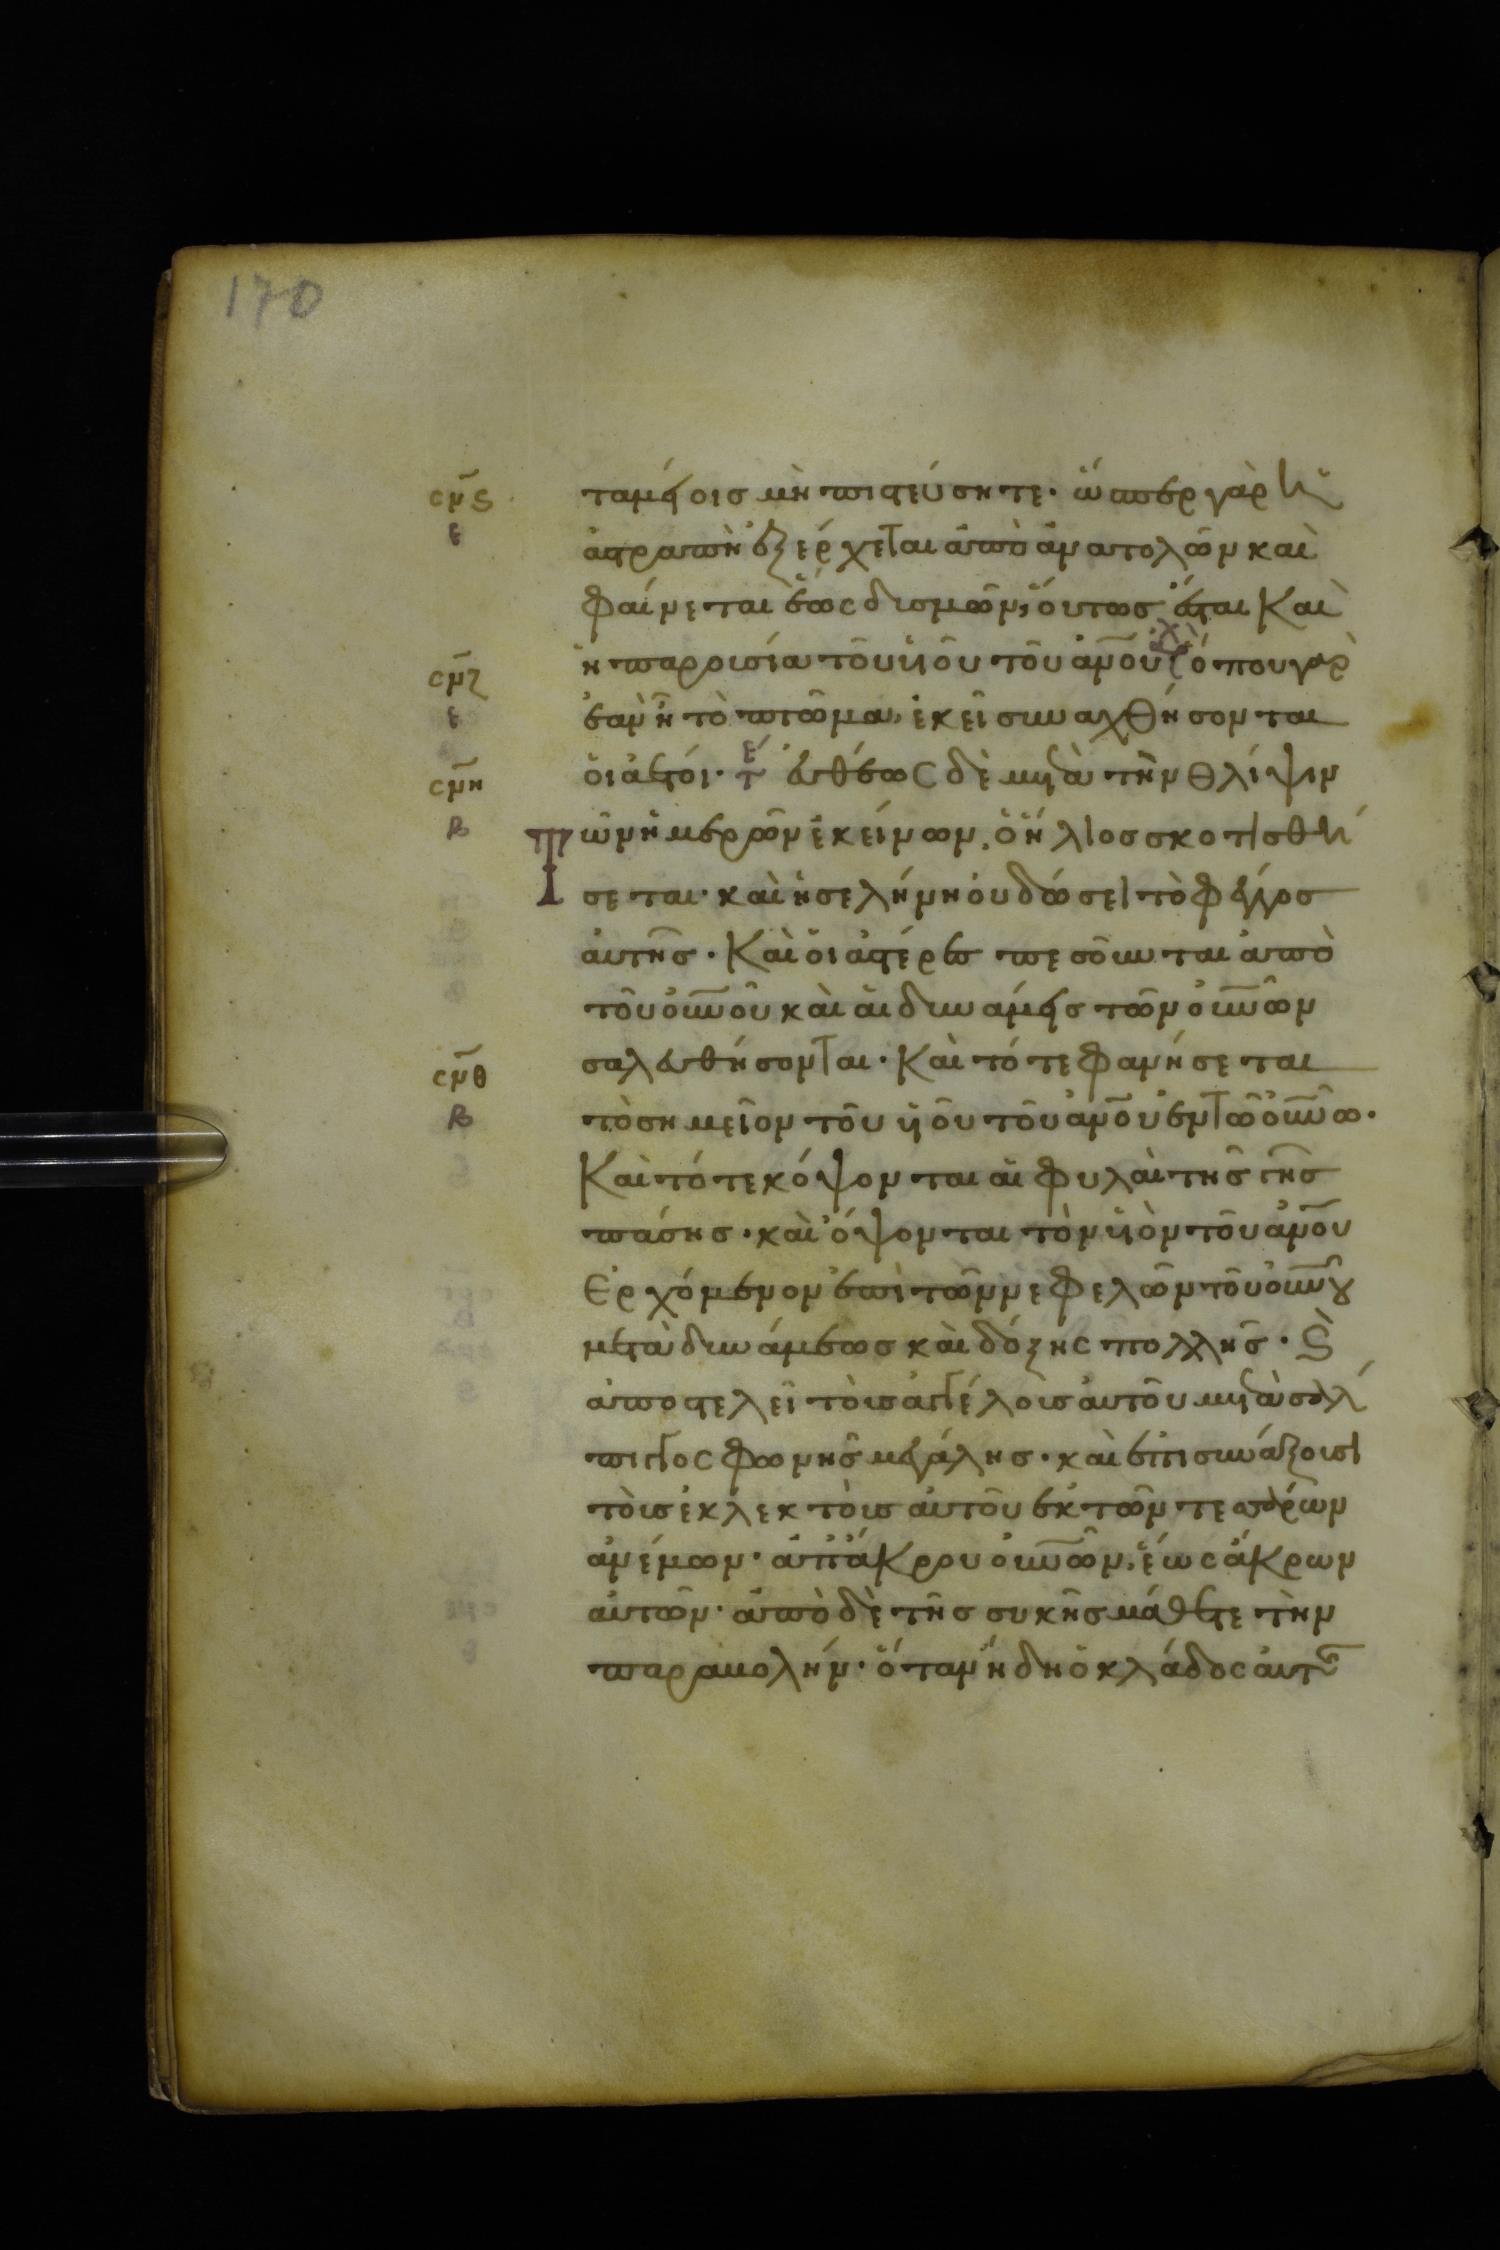 170
σμ̅ς ταμείοις μὴ πιστεύσητε· ὥσπερ γὰρ ἡ
ε ἀστραπὴ ἐξέρχεται ἀπὸ ἀνατολῶν καὶ
φαίνεται ἕως δυσμῶν, οὕτως ἔσται καὶ
σμ̅ζ ἡ παρουσία τοῦ υἱοῦ τοῦ ἀν̅ου ὅπου γὰρ
ε ἐὰν ἦ τὸ πτῶμα, ἐκεῖ συναχθήσονται
σμ̅η οἱ ἀετοί· Εὐθέως δὲ μετὰ τὴν θλίψιν
β τῶν ἡμερῶν ἐκείνων, ὁ ἥλιος σκοτισθή
σεται· καὶ ἡ σελήνη οὐ δώσει τὸ φέγγος
αὐτῆς· Καὶ οἱ ἀστέρες πεσοῦνται ἀπὸ
τοῦ οὐ̅νοῦ καὶ αἱ δυνάμεις τῶν οὐ̅νῶν
σμ̅θ σαλευθήσονται· Καὶ τότε φανήσεται
β τὸ σημεῖον τοῦ υἱοῦ τοῦ ἀν̅ου ἐν τῶ οὐ̅νῶ·
Καὶ τότε κόψονται αἱ φυλαὶ τῆς γῆς
πάσης· καὶ ὄψονται τὸν υἱὸν τοῦ ἀν̅ου
Ἐρχόμενον ἐπὶ τῶν νεφελῶν τοῦ οὐ̅νοῦ
μετὰ δυνάμεως καὶ δόξης πολλῆς· ϗ
ἀποστελεῖ τοὺς ἀγγέλους αὐτοῦ μετὰ σάλ
πιγγος φωνῆς μεγάλης· καὶ ἐπισυνάξουσι
τοὺς ἐκλεκτοὺς αὐτοῦ ἐκ τῶν τεσσάρων
ἀνέμων· ἀπ᾽ ἄκρου οὐ̅νῶν, ἕως ἄκρων
αὐτῶν· ἀπὸ δὲ τῆς συκῆς μάθετε τὴν
παραβολήν· ὅταν ἤδη ὁ κλάδος αὐτῆς